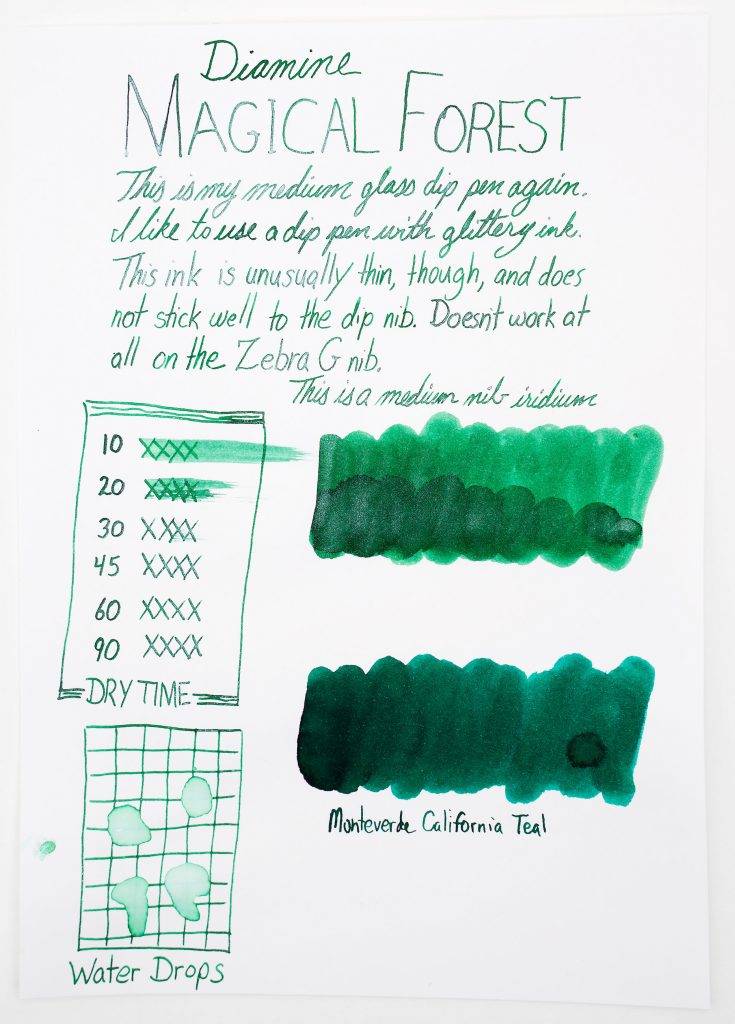 Diamine
MAGICAL FOREST
This is my medium glass dip pen again.
I like to use a dip pen with glittery ink.
This ink is unusually thin, though, and does
not stick well to the dip nib. Doesn't work at
all on the Zebra G nib.
This is a medium nib iridium
10 XXXX
20 XXXX
30 XXXX
45 XXXX
60 XXXX
90 XXXX
DRY TIME
Monteverde California Teal
Water Drops